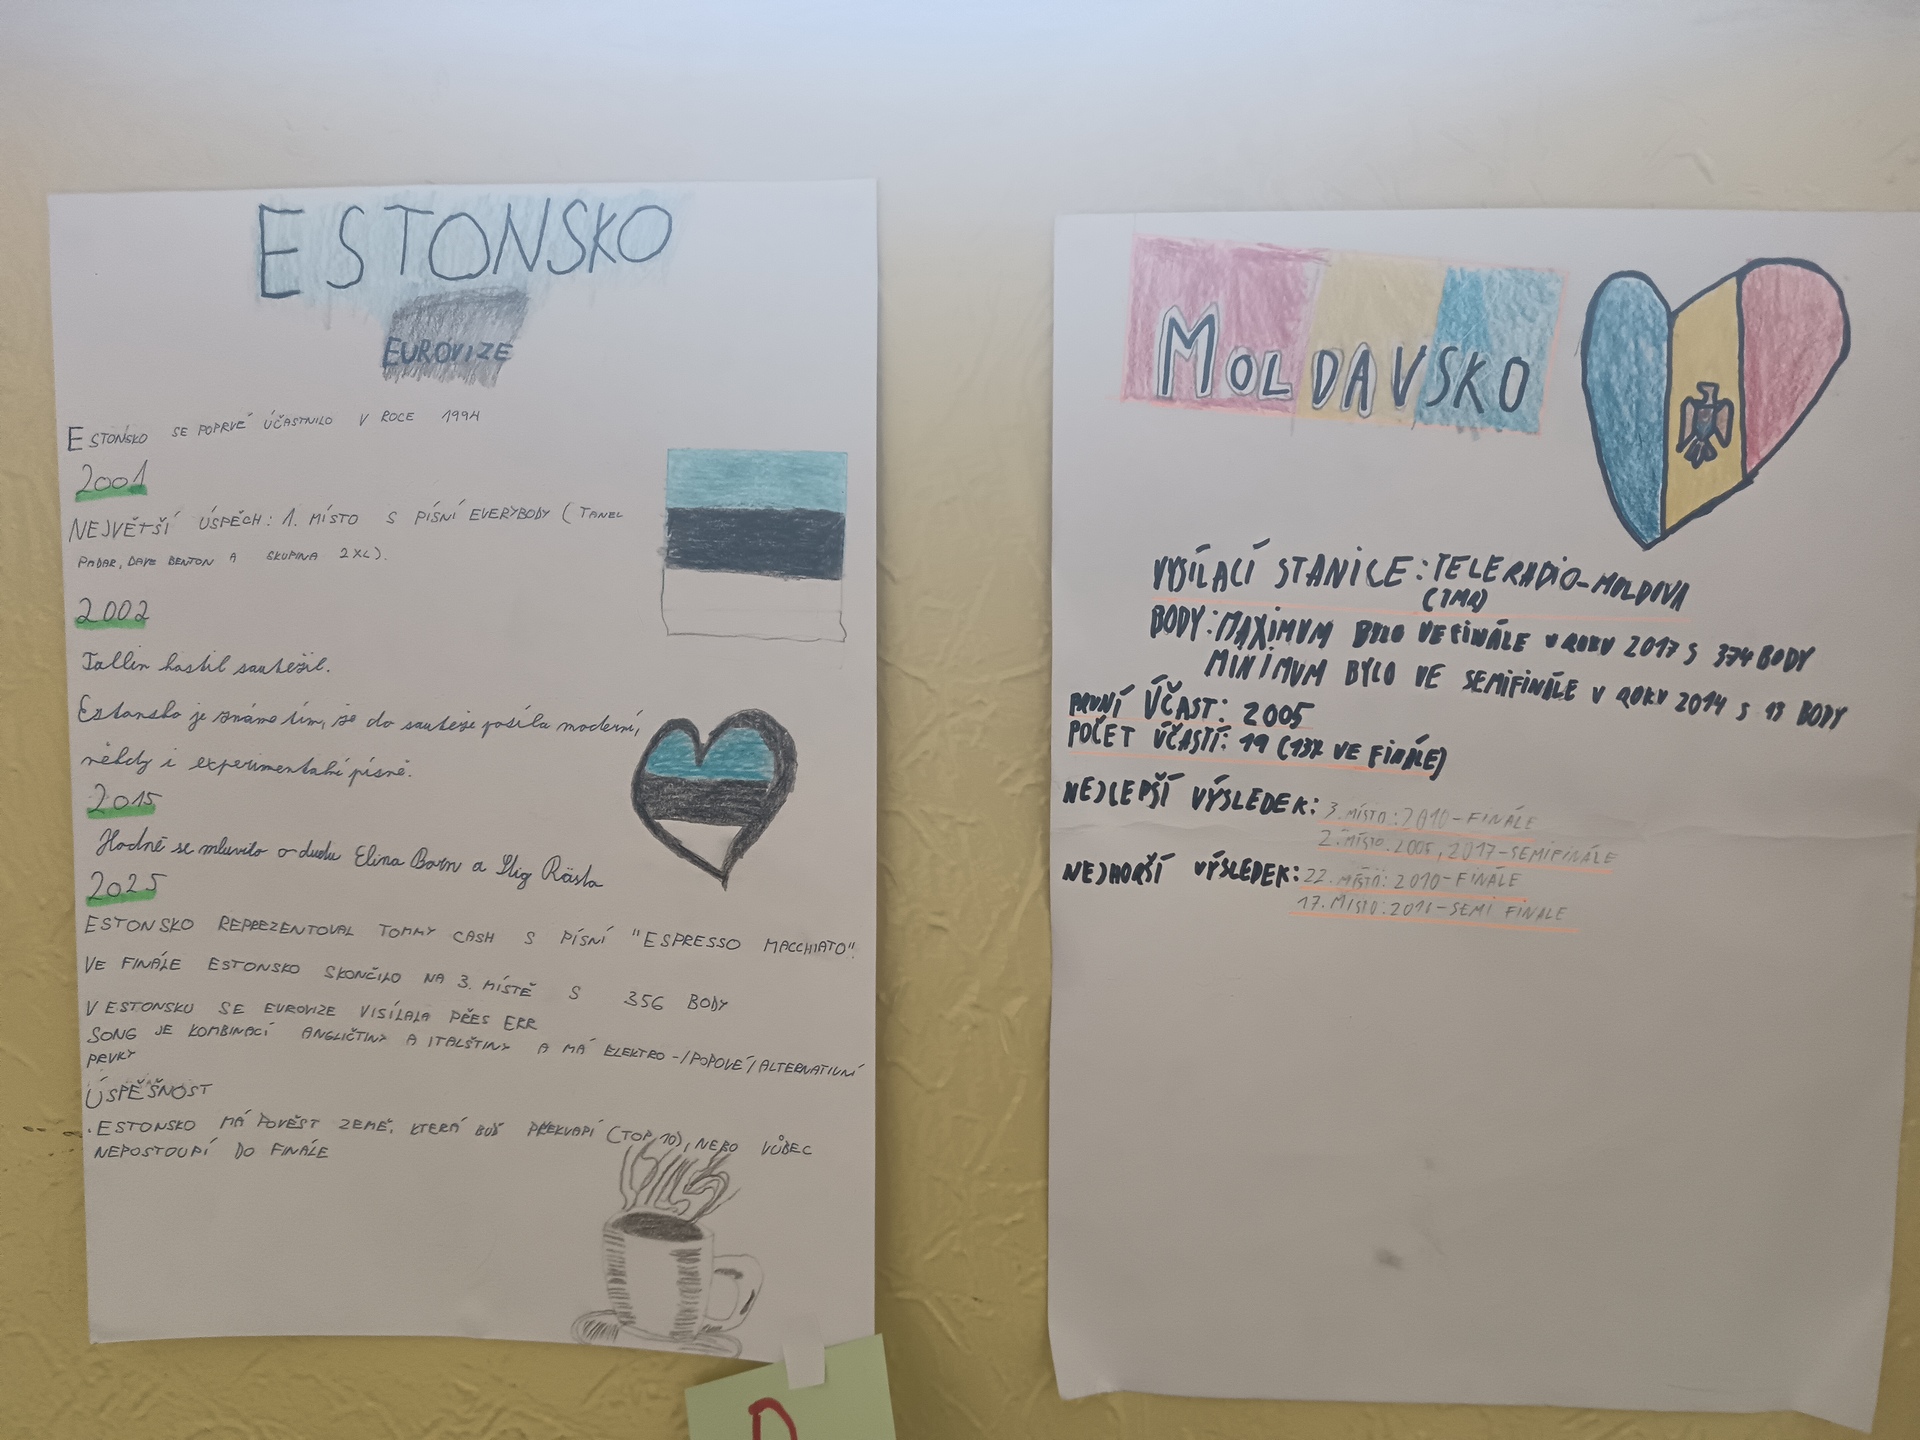 ESTONSKO
EUROVIZE
ESTONSKO SE POPRVÉ ÚČASTNILO V ROCE 1994
2001
NEJVĚTŠÍ ÚSPĚCH: 1. MÍSTO S PÍSNÍ EVERYBODY (TANEL
PADAR, DAVE BENTON A SKUPINA 2XL).
2002
Tallin hostil soutěžil.
Estonsko je známé tím, že do soutěže posílá moderní,
někdy i experimentální písně.
2015
Hodně se mluvilo o dudu Elina Born a Stig Rästa
2025
ESTONSKO REPREZENTOVAL TOMMY CASH S PÍSNÍ "ESPRESSO MACCHIATO".
VE FINÁLE ESTONSKO SKONČILO NA 3. MÍSTĚ S 356 BODY
V ESTONSKU SE EUROVIZE VISÍLALA PŘES ERR
SONG JE KOMBINACÍ ANGLIČTINY A ITALŠTINY A MÁ ELEKTRO-/POPOVÉ/ALTERNATIVNÍ
PRVKY
ÚSPĚŠNOST
.ESTONSKO MÁ POVĚST ZEMĚ, KTERÁ BUĎ PŘEKVAPÍ (TOP 10), NEBO VŮBEC
NEPOSTOUPÍ DO FINÁLE
MOLDAVSKO
VYSÍLACÍ STANICE: TELERADIO-MOLDIVA
BODY: MAXIMUM BYLO VE FINÁLE V ROKU 2017 S 374 BODY
MINIMUM BYLO VE SEMIFINÁLE V ROKU 2014 S 13 BODY
PRVNÍ ÚČAST: 2005
POČET ÚČASTÍ: 19 (13X VE FINÁLE)
NEJLEPŠÍ VÝSLEDEK: 3. MÍSTO: 2010-FINÁLE
2. MÍSTO. 2005, 2017-SEMIFINÁLE
NEJHORŠÍ VÝSLEDEK: 22. MÍSTO: 2010-FINÁLE
17. MÍSTO: SEMI FINALE